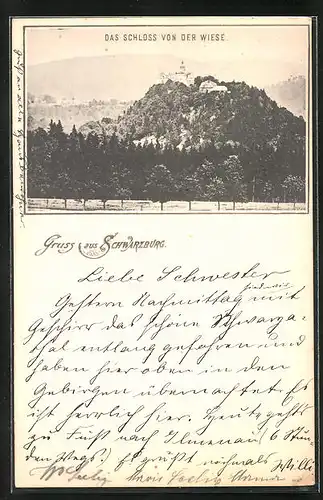 DAS SCHLOSS VON DER WIESE.
Gruss aus Schwarzburg.
Liebe Schwester
Gestern Nachmittag sind wir mit
Geschirr das schöne Schwarza-
thal entlang gefahren und
haben hier oben in den
Gebirgen übernachtet. Es
ist herrlich hier. Heute gehts
zu Fuß nach Ilmenau (6 Stun-
den Wegs.) Es grüßt nochmals Willi